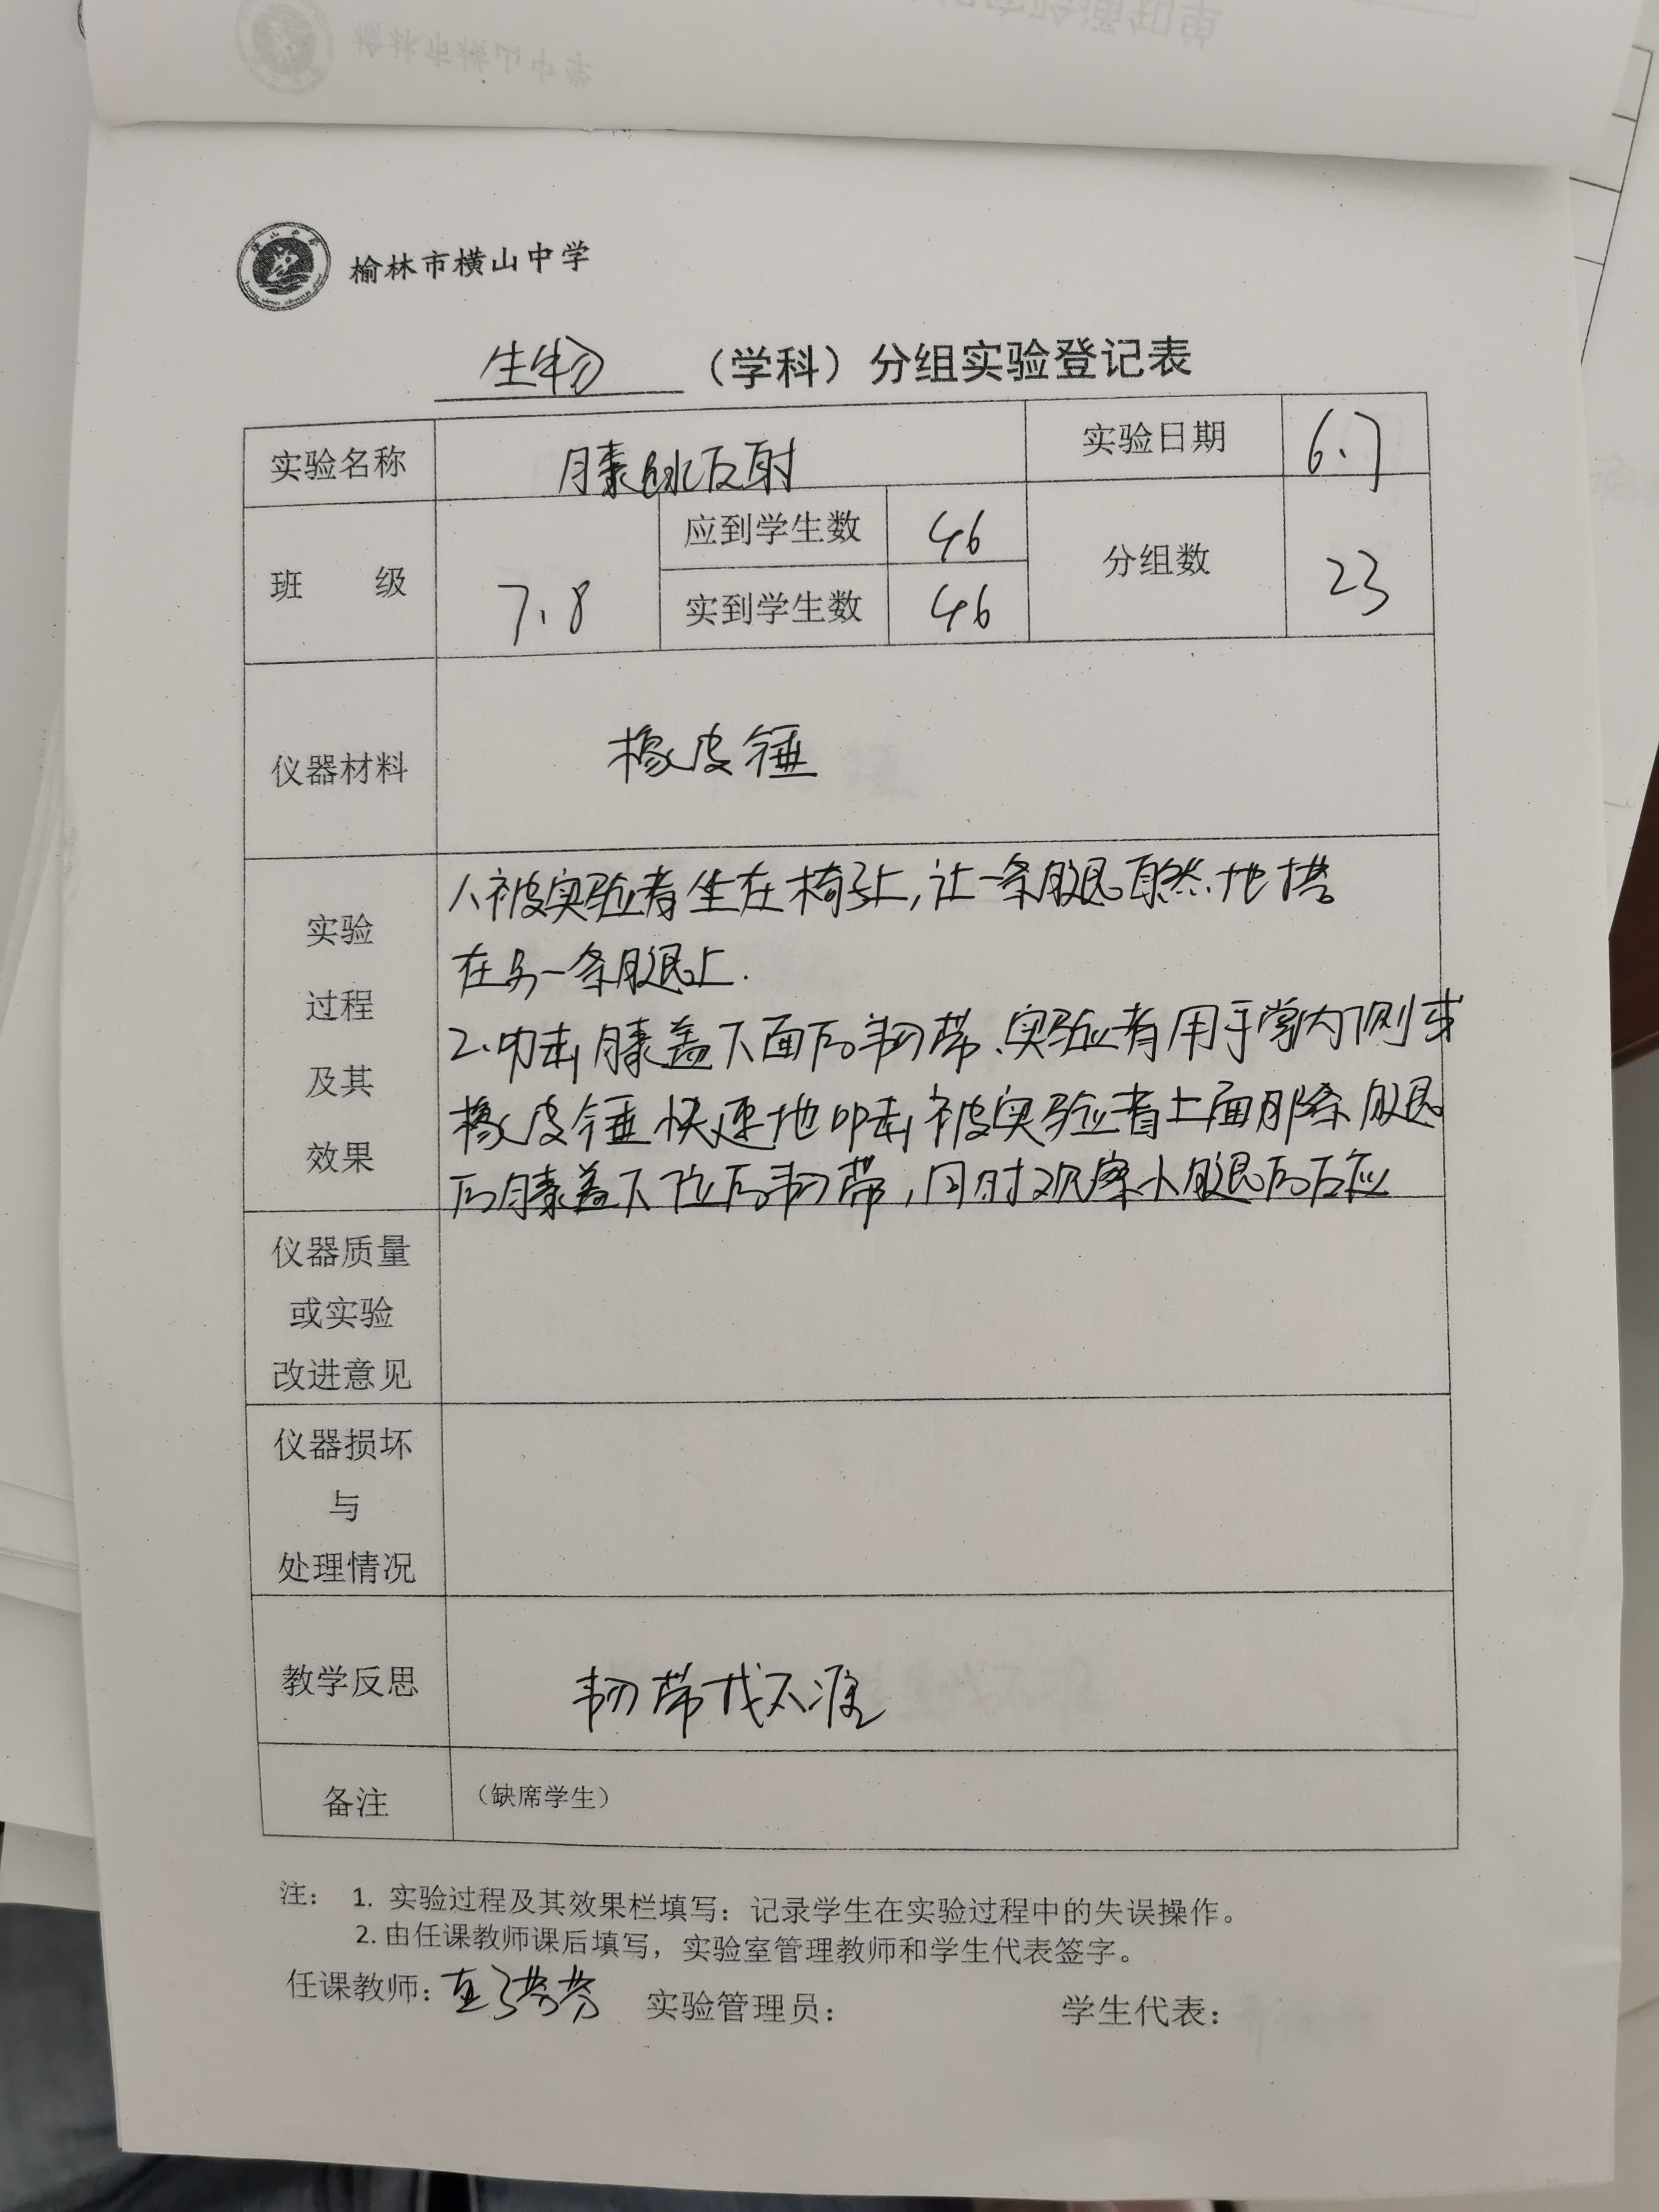 榆林市横山中学
生物 （学科）分组实验登记表
实验名称 膝跳反射 实验日期 6.7
班 级 7.8 应到学生数 46 分组数 23
实到学生数 46
仪器材料 橡皮锤
实验
过程
及其
效果
1、被实验者坐在椅子上,让一条腿自然地搭
在另一条腿上.
2.叩击膝盖下面的韧带、实验者用手掌内侧或
橡皮锤快速地叩击被实验者上面那条腿
的膝盖下位的韧带,同时观察小腿的反应
仪器质量
或实验
改进意见
仪器损坏
与
处理情况
教学反思 韧带找不准
备注 （缺席学生）
注： 1. 实验过程及其效果栏填写：记录学生在实验过程中的失误操作。
2. 由任课教师课后填写，实验室管理教师和学生代表签字。
任课教师： 实验管理员： 学生代表：